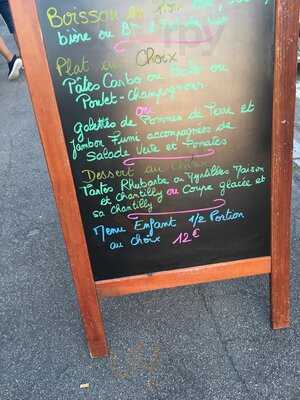 Boisson
bière ou
Plat au Choix
Pâtes Carbo ou Pesto ou
Poulet-Champignons
ou
galettes de Pommes de Terre et
jambon Fumé accompagnés de
Salade Verte et Tomates
Dessert au Choix
Tartes Rhubarbe ou Myrtilles Maison
et chantilly ou Coupe glacée et
sa chantilly
Menu Enfant 1/2 Portion
au choix 12€